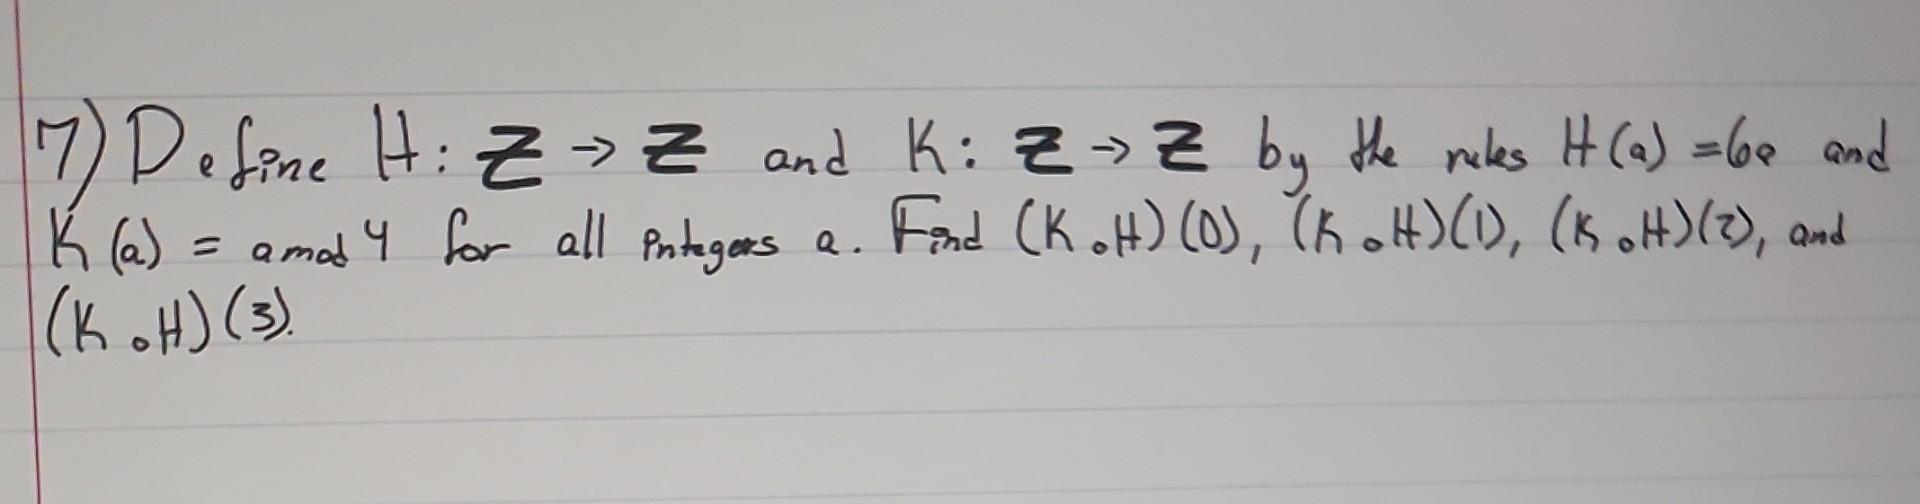 7) Define H: Z → Z and K: Z → Z by the rules H(a) = 6a and
K(a) = a mod 4 for all integers a. Find (K∘H)(0), (K∘H)(1), (K∘H)(2), and
(K∘H)(3).